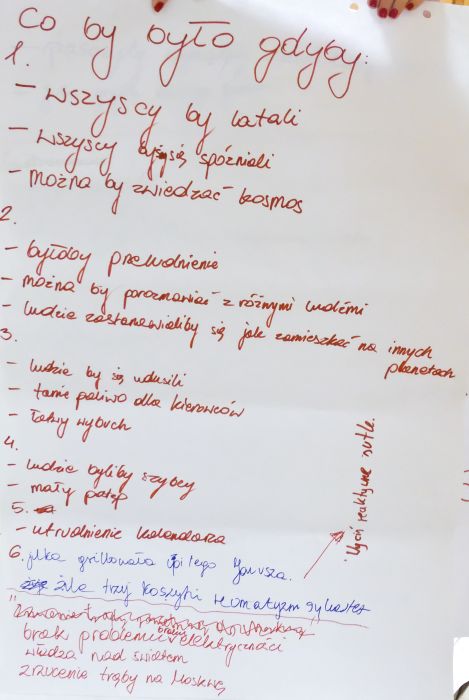 Co by było gdyby:
1.
- wszyscy by latali
- wszyscy by się spóźniali
- można by zwiedzać kosmos
2.
- byłoby przeludnienie
- można by porozmawiać z różnymi ludźmi
- ludzie zastanawialiby się jak zamieszkać na innych
planetach
3.
- ludzie by się udusili
- tanie paliwo dla kierowców
- łatwy wybuch
4.
- ludzie byliby szybcy
- mały potop
5.
- utrudnienie kalendarza
6. piłka grillowała tego Janusza.
żile trzy koszyki reumatyzm sylwester
brak problemu elektryczności
władza nad światem
zrzucenie trąby na Moskwę
reaktywne